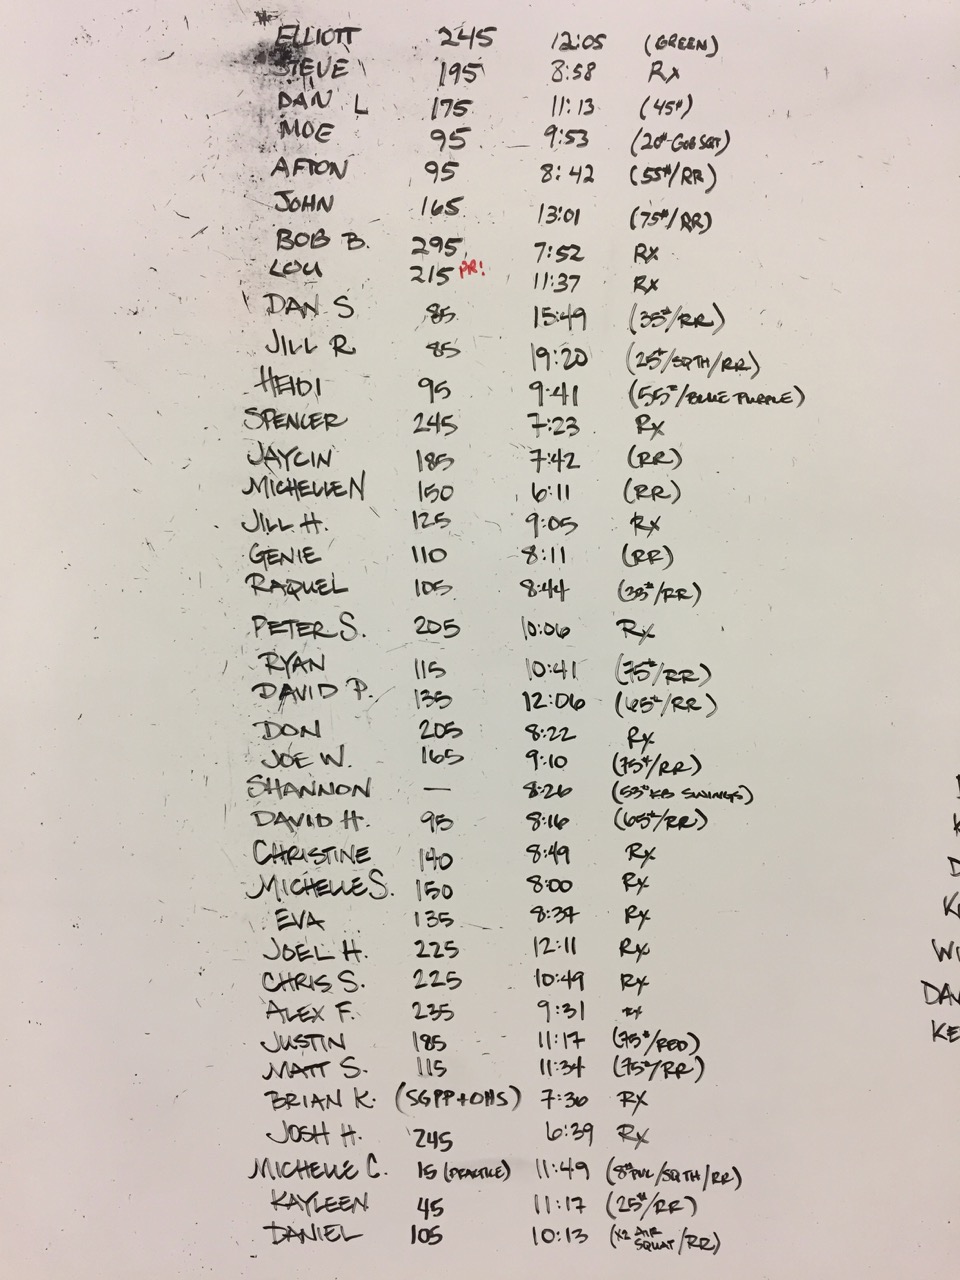 ELLIOTT 245 12:05 (GREEN)
STEVE 195 8:58 Rx
DAN L 175 11:13 (45#)
MOE 95 9:53 (20#-GOB SQT)
AFTON 95 8:42 (55#/RR)
JOHN 165 13:01 (75#/RR)
BOB B. 295 7:52 Rx
LOU 215 PR! 11:37 Rx
DAN S 85 15:49 (35#/RR)
JILL R 85 19:20 (25#/SQTH/RR)
HEIDI 95 9:41 (55#/BLUE PURPLE)
SPENCER 245 7:23 Rx
JAYCIN 185 7:42 (RR)
MICHELLE N 150 6:11 (RR)
JILL H. 125 9:05 Rx
GENIE 110 8:11 (RR)
RAQUEL 105 8:44 (35#/RR)
PETER S. 205 10:06 Rx
RYAN 115 10:41 (75#/RR)
DAVID P. 135 12:06 (65#/RR)
DON 205 8:22 Rx
JOE W. 165 9:10 (75#/RR)
SHANNON — 8:26 (53# KB SWINGS)
DAVID H. 95 8:16 (65#/RR)
CHRISTINE 140 8:49 Rx
MICHELLE S. 150 8:00 Rx
EVA 135 8:37 Rx
JOEL H. 225 12:11 Rx
CHRIS S. 225 10:49 Rx
ALEX F. 235 9:31 Rx
JUSTIN 185 11:17 (75#/RED)
MATT S. 115 11:34 (75#/RR)
BRIAN K. (SGPP+OHS) 7:36 RX
JOSH H. 245 6:39 Rx
MICHELLE C. 15 (PRACTICE) 11:49 (8# PVC/SQTH/RR)
KAYLEEN 45 11:17 (25#/RR)
DANIEL 105 10:13 (x2 AIR SQUAT/RR)
K
D
WI
DAV
KE